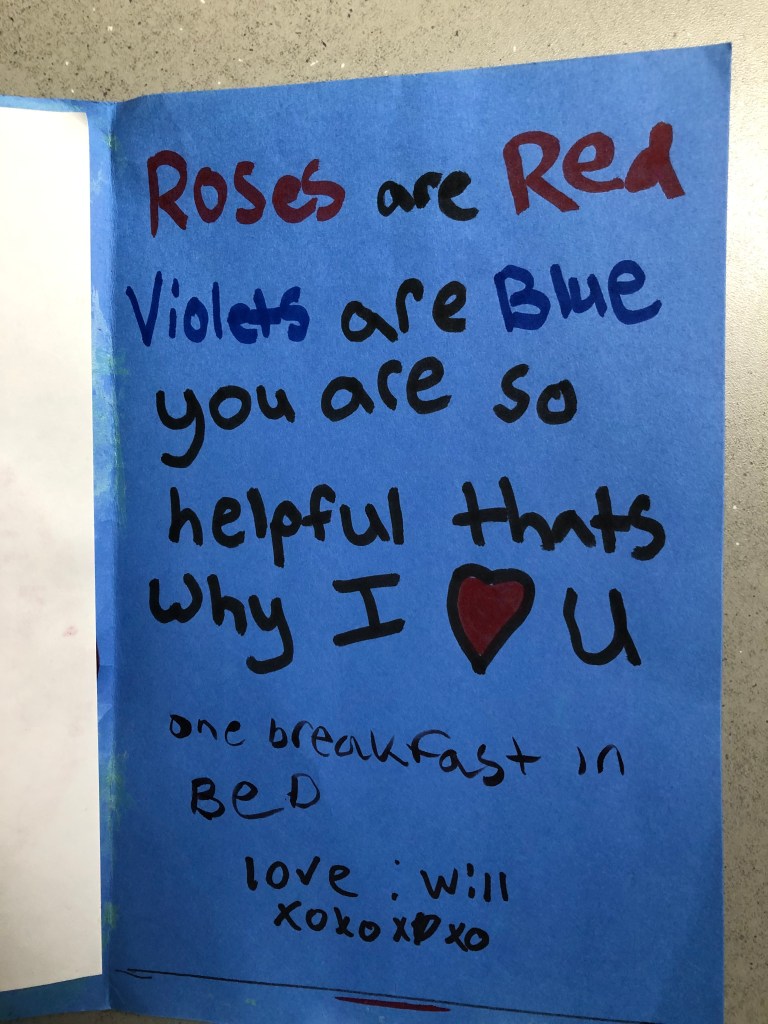 Roses are Red
Violets are Blue
you are so
helpful thats
Why I ❤ U
one breakfast in
BeD
love : will
xoxoxoxo